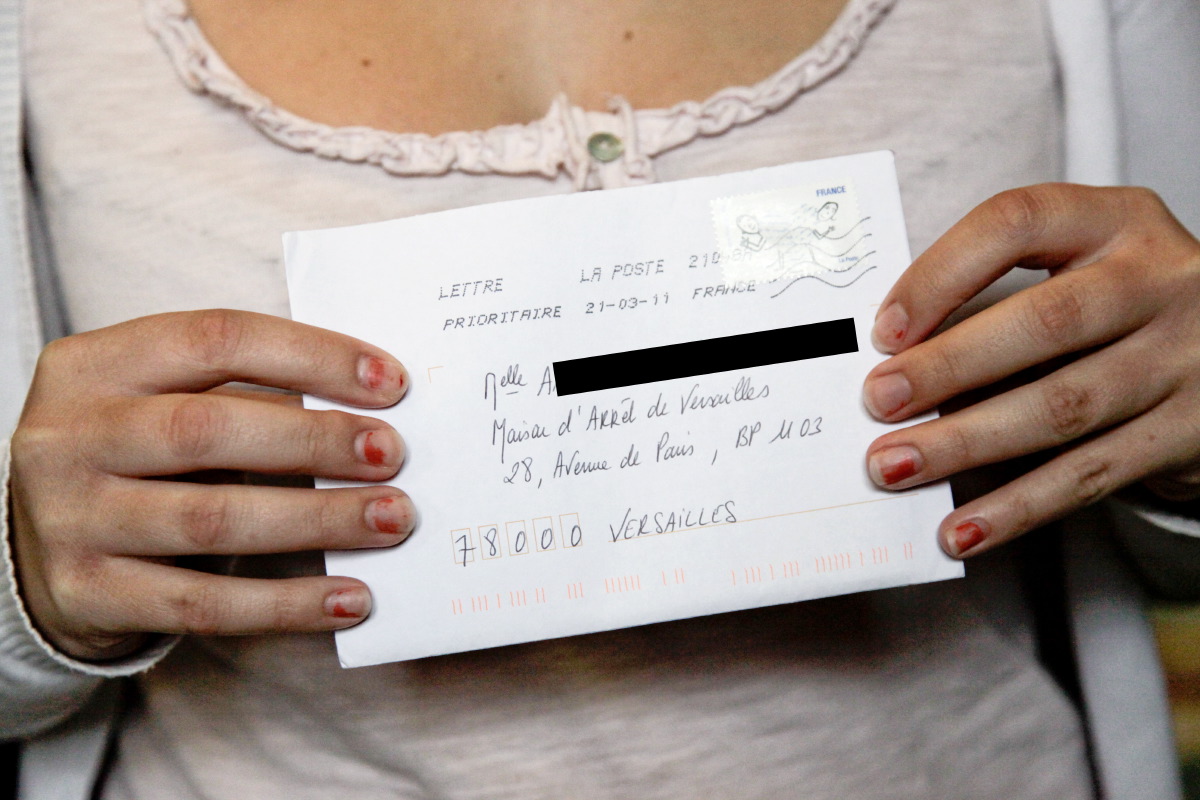 FRANCE
La Poste
LETTRE LA POSTE
PRIORITAIRE 21-03-11 FRANCE
Melle A
Maison d'ARRêt de Versailles
28, Avenue de Paris, BP 1103
78000 VERSAILLES